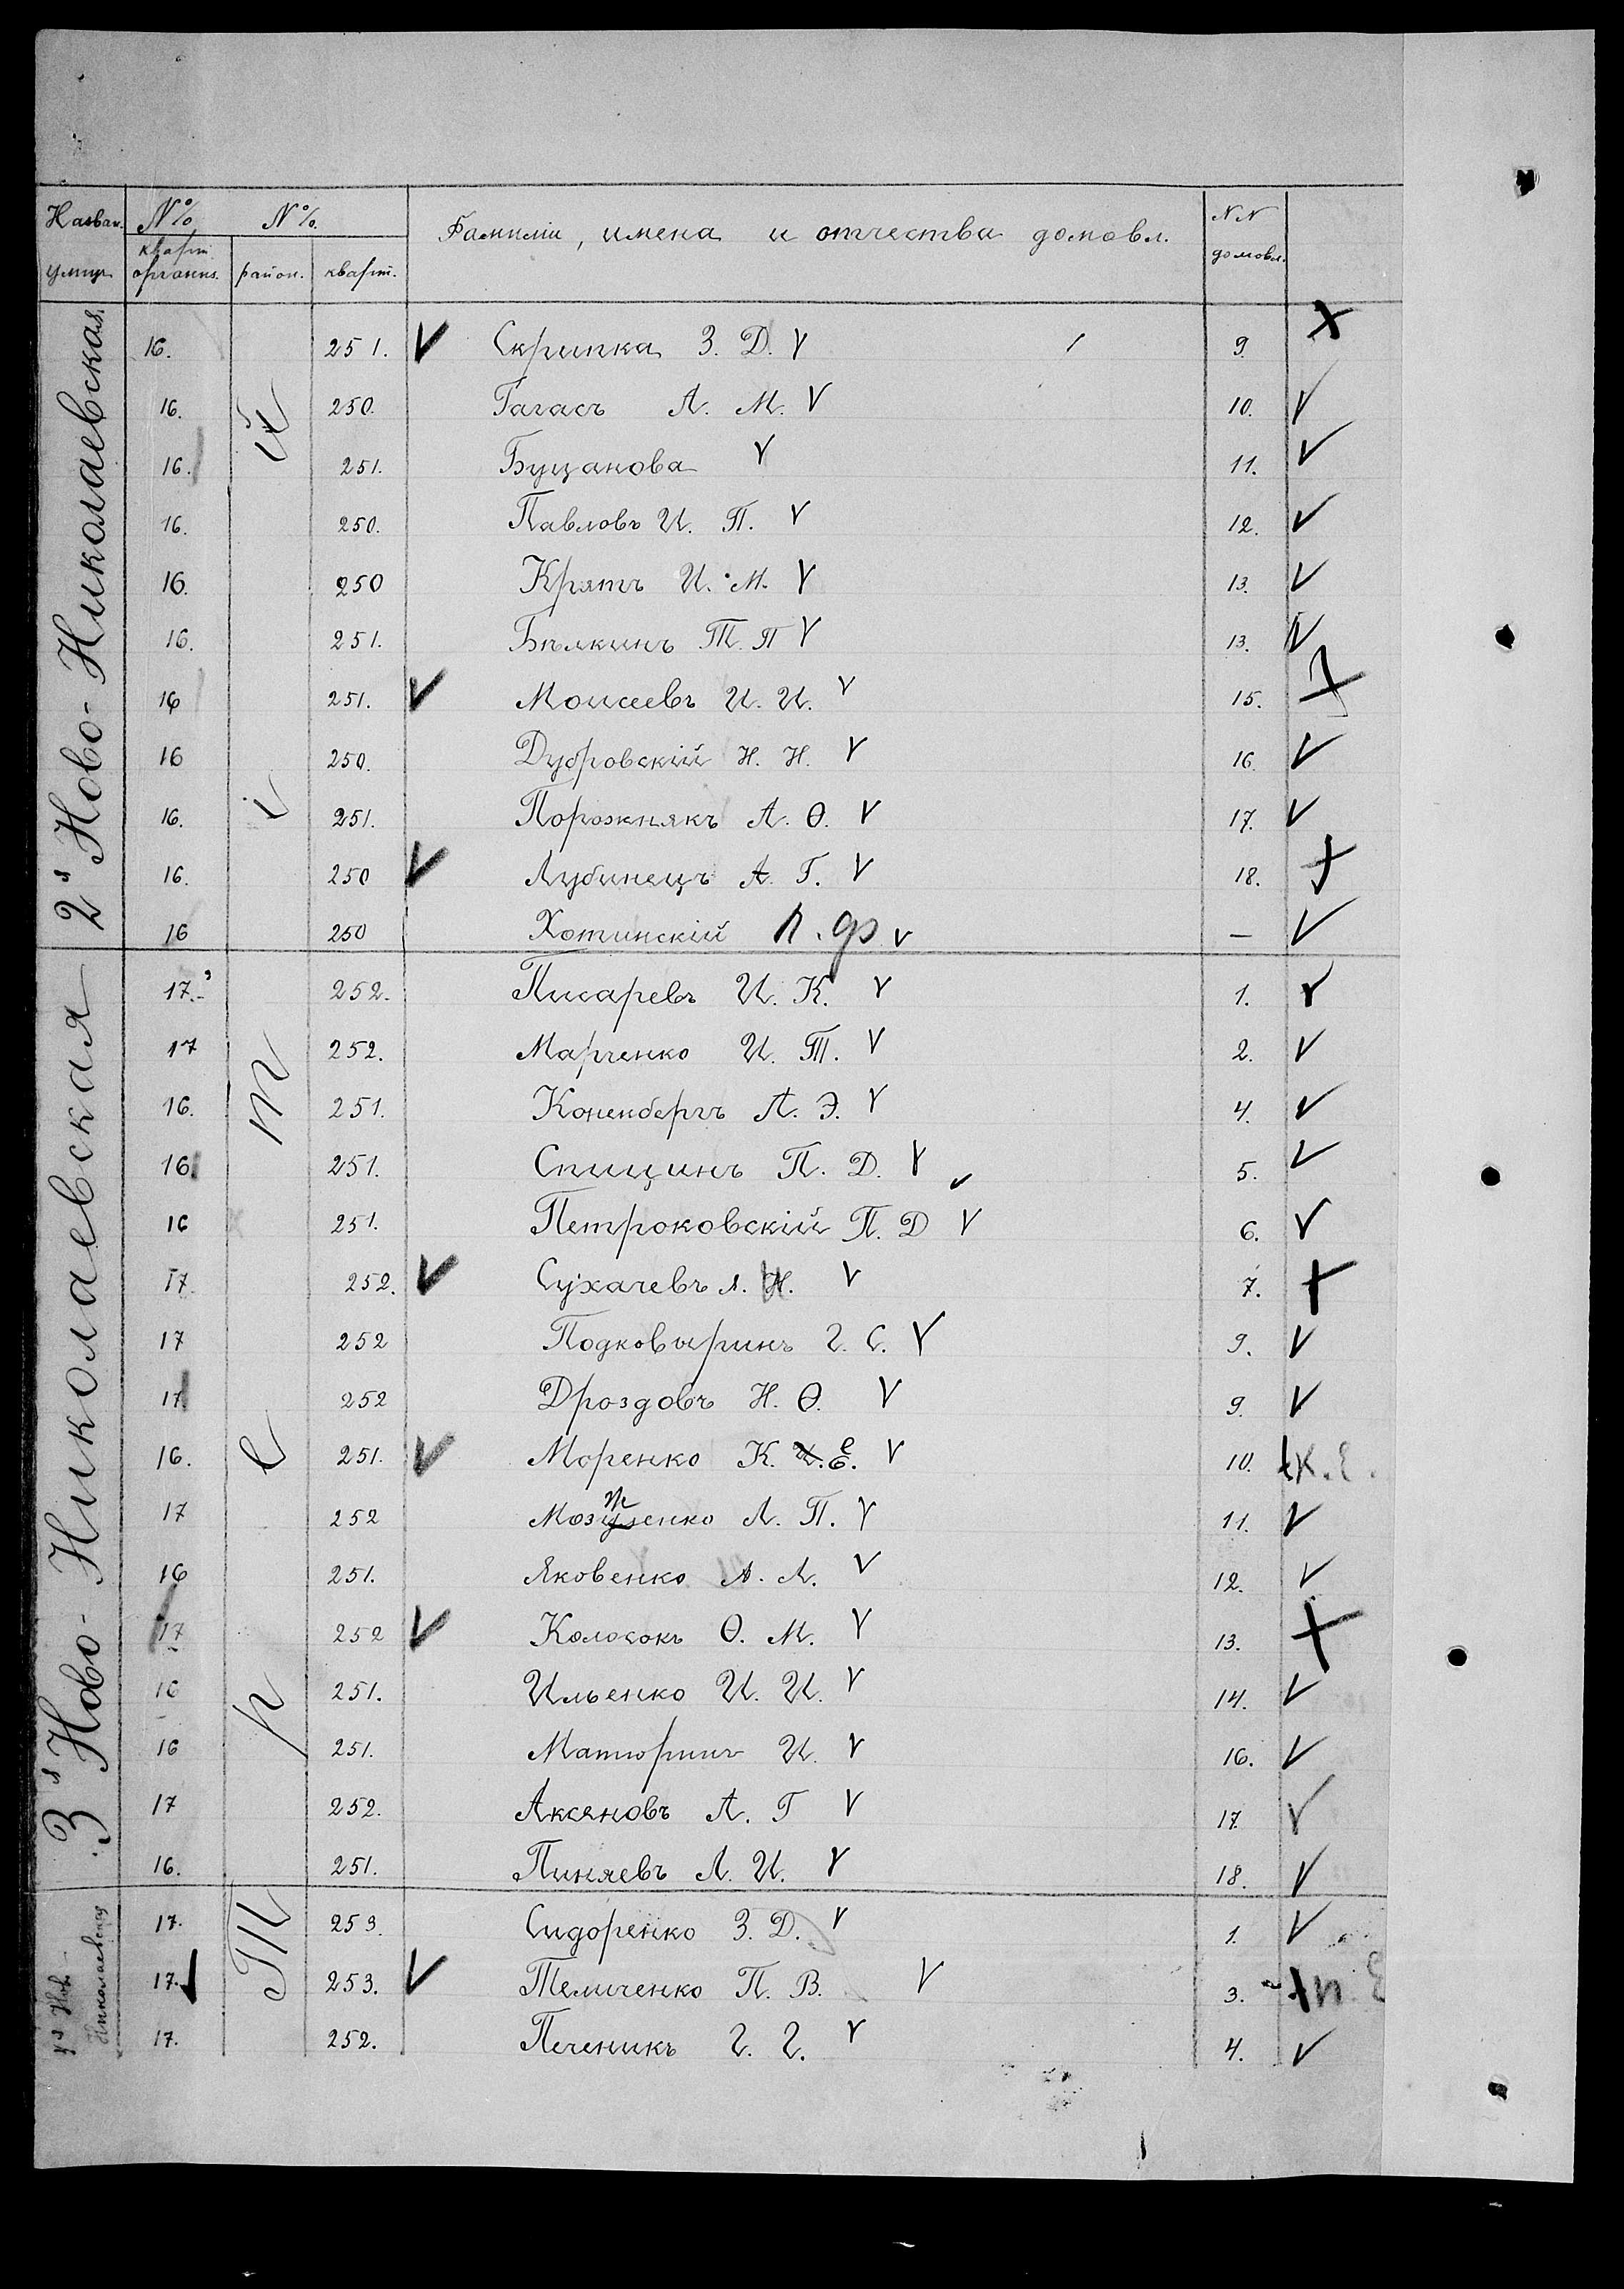 Назван. улицъ
№%
№%.
Фамиліи, имена и отчества домовл.
№№ домовл.
кварт. организ. район. кварт.
2я Ново-Николаевская
Третій
16. 251. V Скрипка З. Д. V 9. +
16. 250. Гагасъ А. М. V 10. V
16. 251. Буцанова V 11. V
16. 250. Павловъ И. П. V 12. V
16. 250 Крятъ И. М. V 13. V
16. 251. Бѣлкинъ Т. П V 13. V
16 251. V Моисеевъ И. И. V 15. +
16 250. Дубровскій Н. Н. V 16. V
16. 251. Порожнякъ А. Ѳ. V 17. V
16. 250 V Лубинецъ А. Г. V 18. +
16 250 Хотинскій П. Ф V — V
3я Ново-Николаевская
17. 252. Писаревъ И. К. V 1. V
17 252. Марченко И. Т. V 2. V
16. 251. Коненбергъ А. Э. V 4. V
16 251. Спицинъ П. Д. V 5. V
16 251. Петроковскій П. Д V 6. V
17 252. V Сухачевъ Л. Н. V 7. +
17 252 Подковыринъ Г. С. V 9. V
17 252 Дроздовъ Н. Ѳ. V 9. V
16. 251. V Моренко К. Е. V 10. +К. Е.
17 252 Л. П. V 11. V
16 251. Яковенко А. Л. V 12. V
17 252 V Колосокъ Ѳ. М. V 13. +
16 251. Ильенко И. И. V 14. V
16 251. Матюринъ И. V 16. V
17 252. Аксяновъ А. Г V 17. V
16. 251. Пиняевъ Л. И. V 18. V
Николаевская
17. 253. Сидоренко З. Д. V 1. V
17. 253. V Теличенко П. В. V 3. +
17. 252. Печеникъ Г. Г. V 4. V